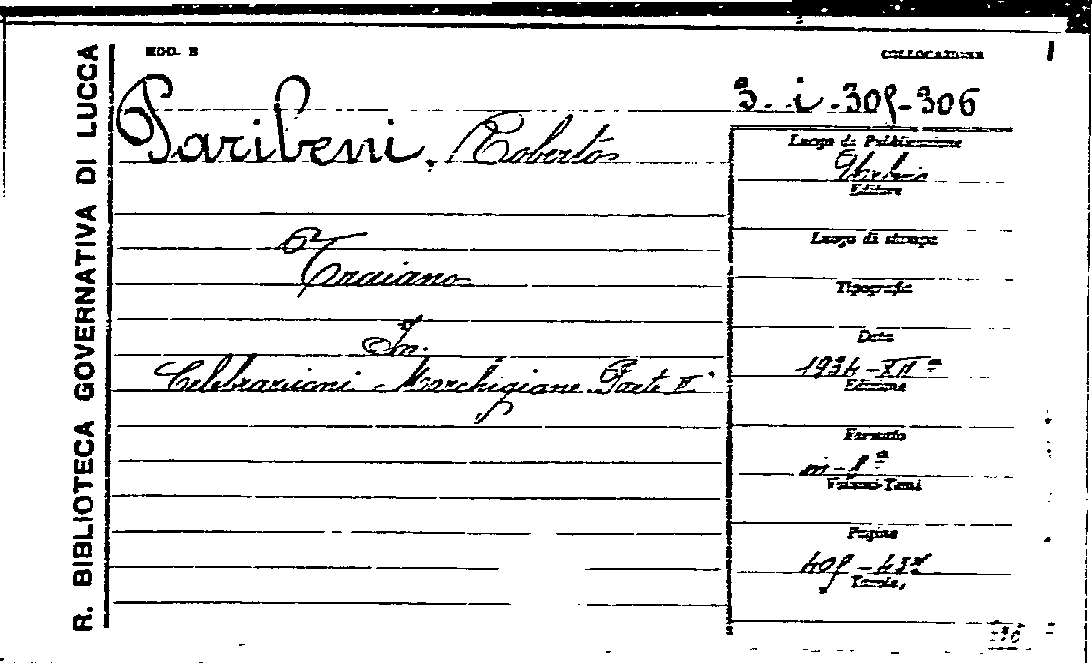 R. BIBLIOTECA GOVERNATIVA DI LUCCA
MOD. B
COLLOCAZIONE
3. i. 305-306
Paribeni, Roberto
Luogo di Pubblicazione
Editore
Traiano
Luogo di stampa
Tipografia
In
Celebrazioni Marchigiane Parte II
Data
1934-XIIº
Edizione
Formato
in-8º
Volumi-Tomi
Pagine
Tavole